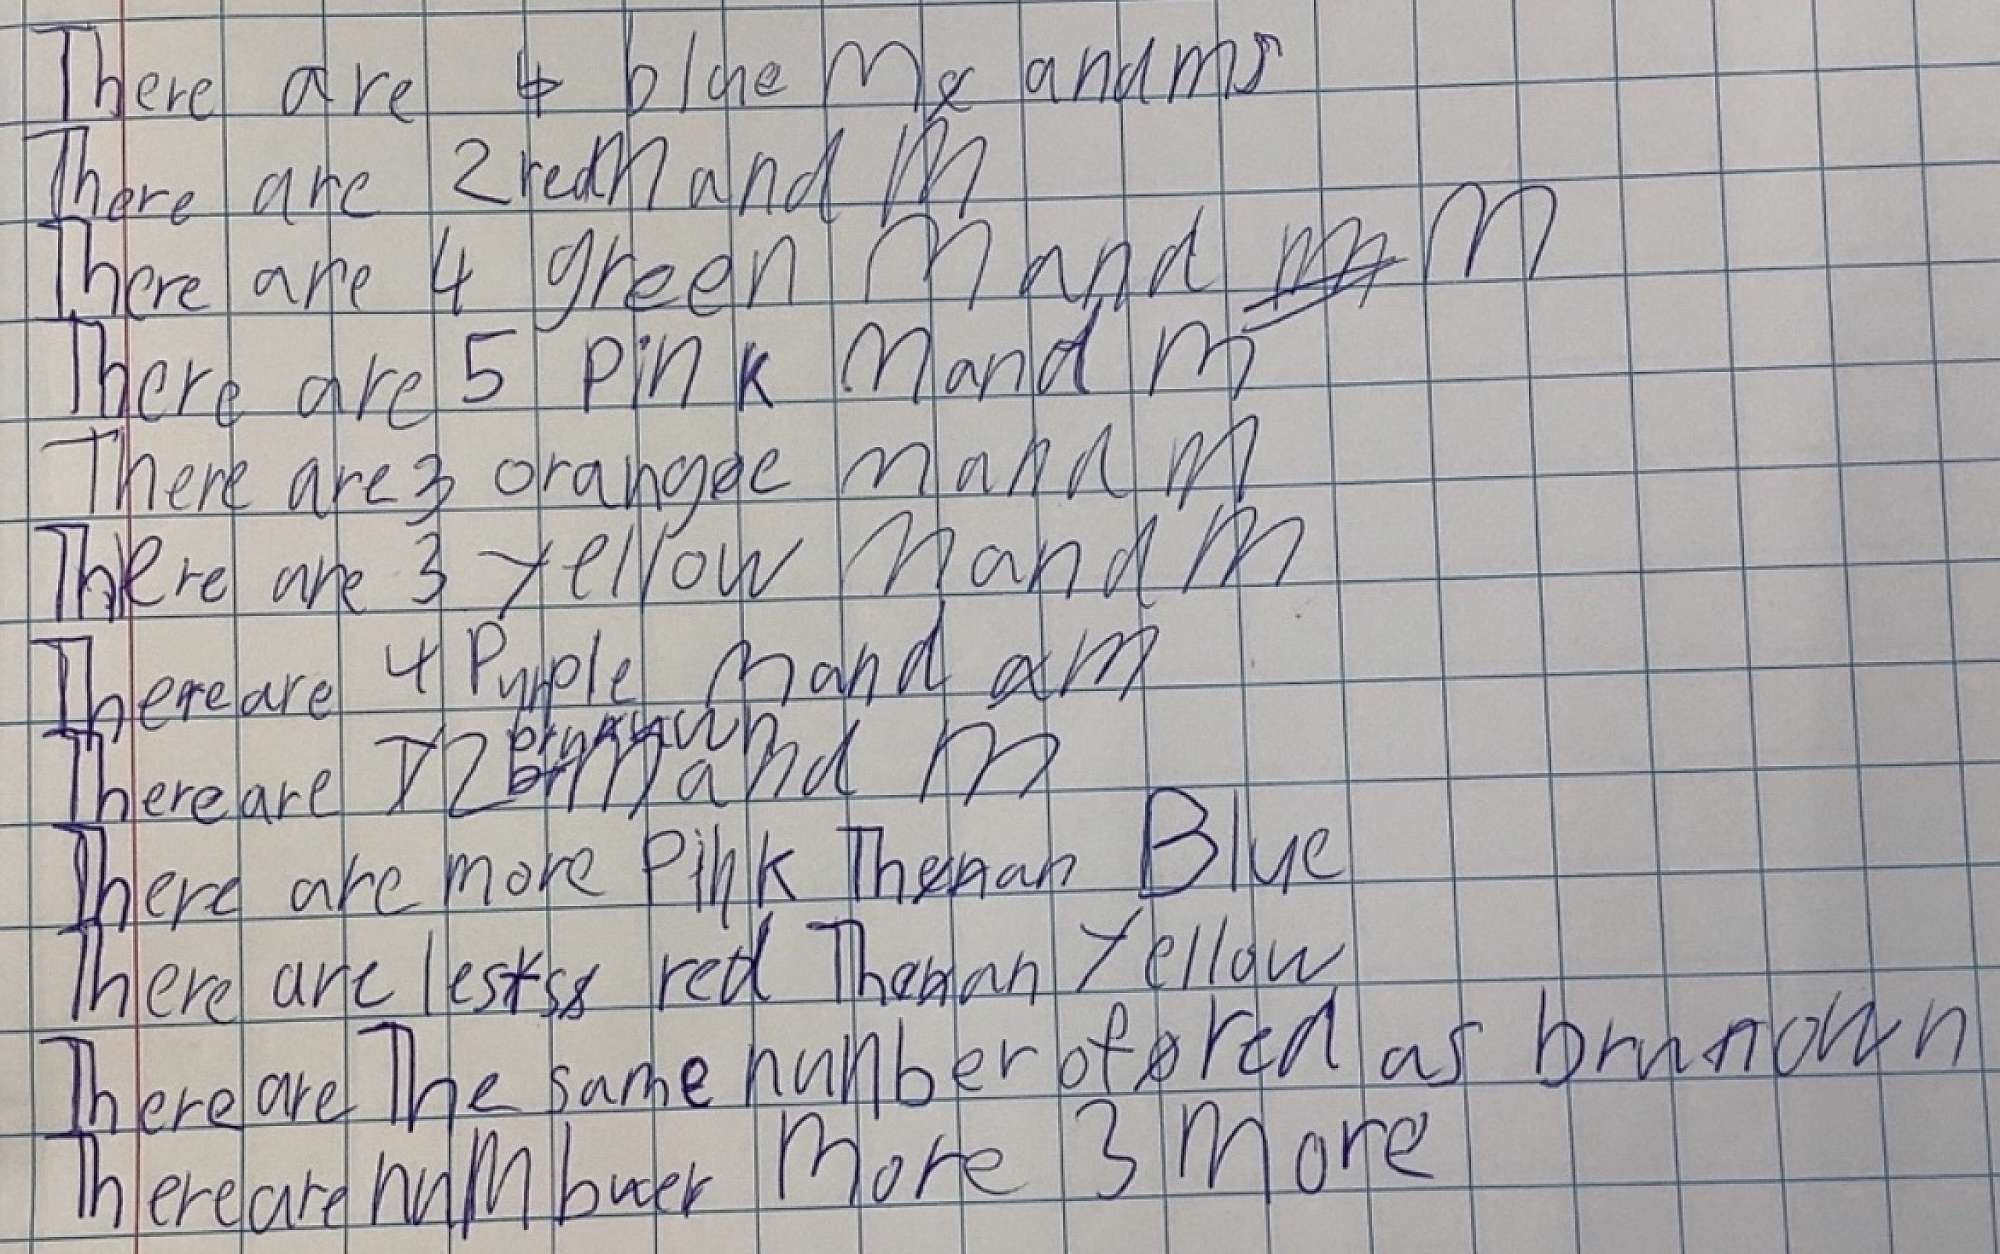 There are 4 blue M and ms
There are 2 red M and M
There are 4 green M and M
There are 5 Pink M and M
There are 3 orange M and M
There are 3 yellow M and M
There are 4 Purple M and M
There are 2 M and M
There are more Pink Than Blue
There are less red Than Yellow
There are The same number of red as brunown
There are number More 3 More